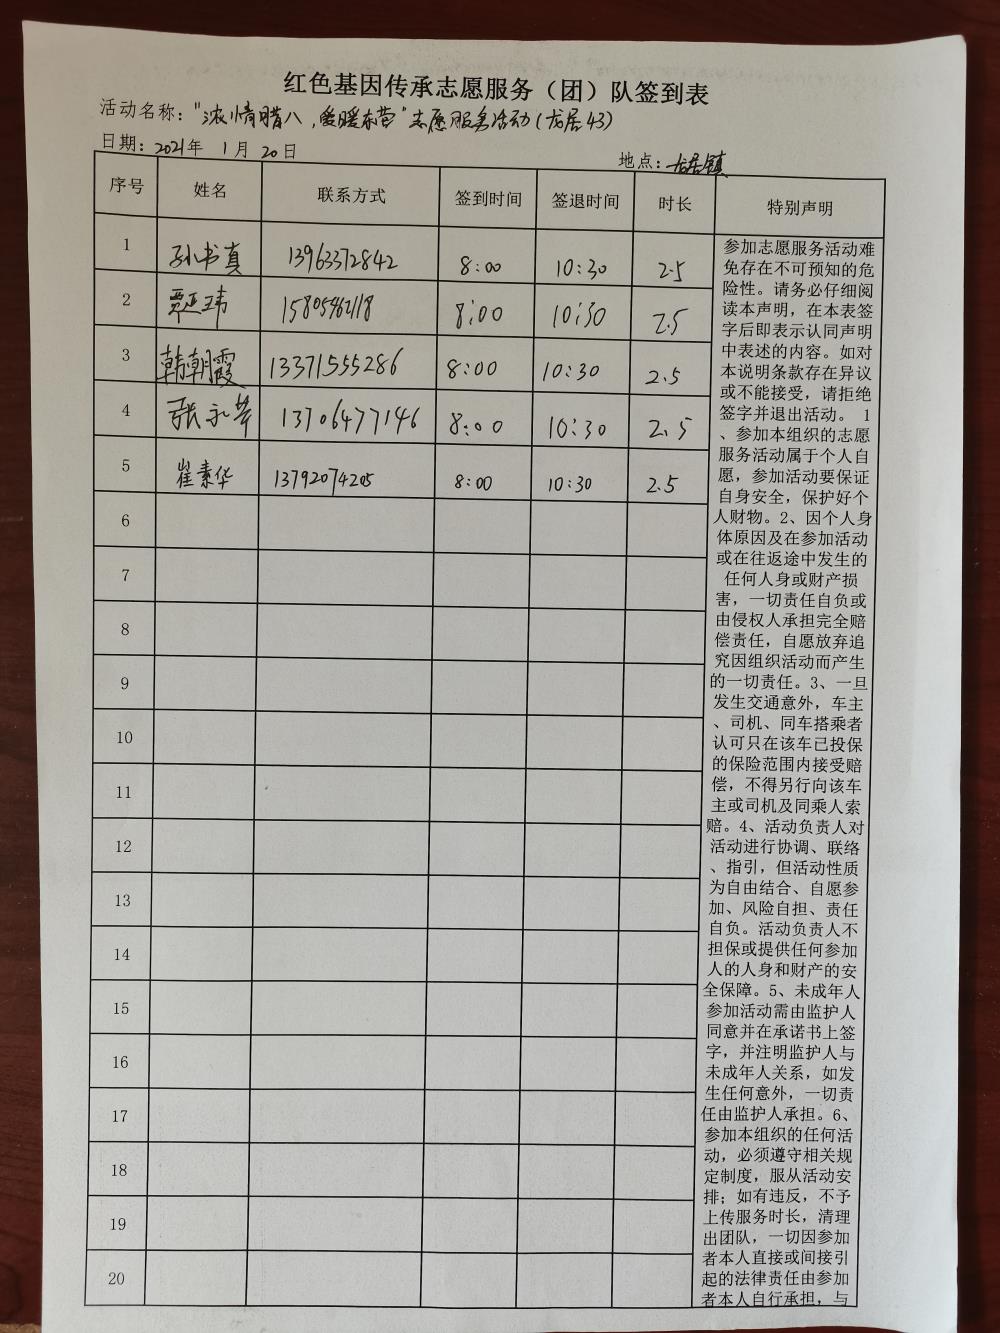 红色基因传承志愿服务（团）队签到表
活动名称："浓情腊八，爱暖东营"志愿服务活动(龙居43)
日期：2021年 1月 20日
地点：龙居镇
序号 姓名 联系方式 签到时间 签退时间 时长 特别声明
1 孙书真 13963372842 8:00 10:30 2.5
2 贾亚玮 15805462118 8:00 10:30 2.5
3 韩朝霞 13371555286 8:00 10:30 2.5
4 张永苹 13706477146 8:00 10:30 2.5
5 崔素华 13792074205 8:00 10:30 2.5
6
7
8
9
10
11
12
13
14
15
16
17
18
19
20
参加志愿服务活动难
免存在不可预知的危
险性。请务必仔细阅
读本声明，在本表签
字后即表示认同声明
中表述的内容。如对
本说明条款存在异议
或不能接受，请拒绝
签字并退出活动。 1
、参加本组织的志愿
服务活动属于个人自
愿，参加活动要保证
自身安全，保护好个
人财物。2、因个人身
体原因及在参加活动
或在往返途中发生的
任何人身或财产损
害，一切责任自负或
由侵权人承担完全赔
偿责任，自愿放弃追
究因组织活动而产生
的一切责任。3、一旦
发生交通意外，车主
、司机、同车搭乘者
认可只在该车已投保
的保险范围内接受赔
偿，不得另行向该车
主或司机及同乘人索
赔。4、活动负责人对
活动进行协调、联络
、指引，但活动性质
为自由结合、自愿参
加、风险自担、责任
自负。活动负责人不
担保或提供任何参加
人的人身和财产的安
全保障。5、未成年人
参加活动需由监护人
同意并在承诺书上签
字，并注明监护人与
未成年人关系，如发
生任何意外，一切责
任由监护人承担。6、
参加本组织的任何活
动，必须遵守相关规
定制度，服从活动安
排；如有违反，不予
上传服务时长，清理
出团队，一切因参加
者本人直接或间接引
起的法律责任由参加
者本人自行承担，与